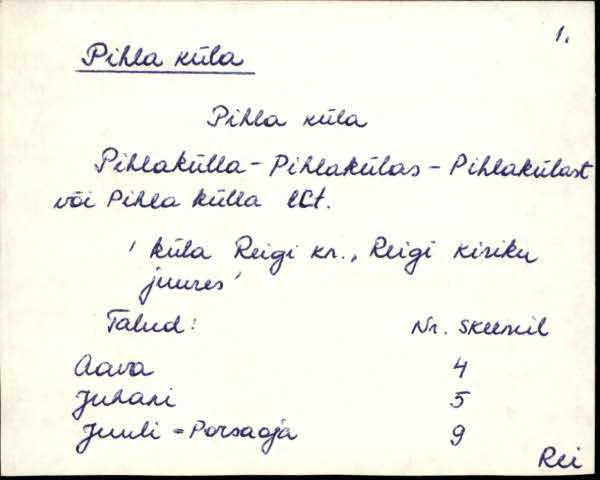 1.
Pihla küla
Pihla küla
Pihlakülla - Pihlakülas - Pihlakülast
või Pihla külla
' küla Reigi kr., Reigi kiriku
juures'
Talud: Nr. skeemil
Aava 4
Juhani 5
Juuli = Porsaoja 9
Rei